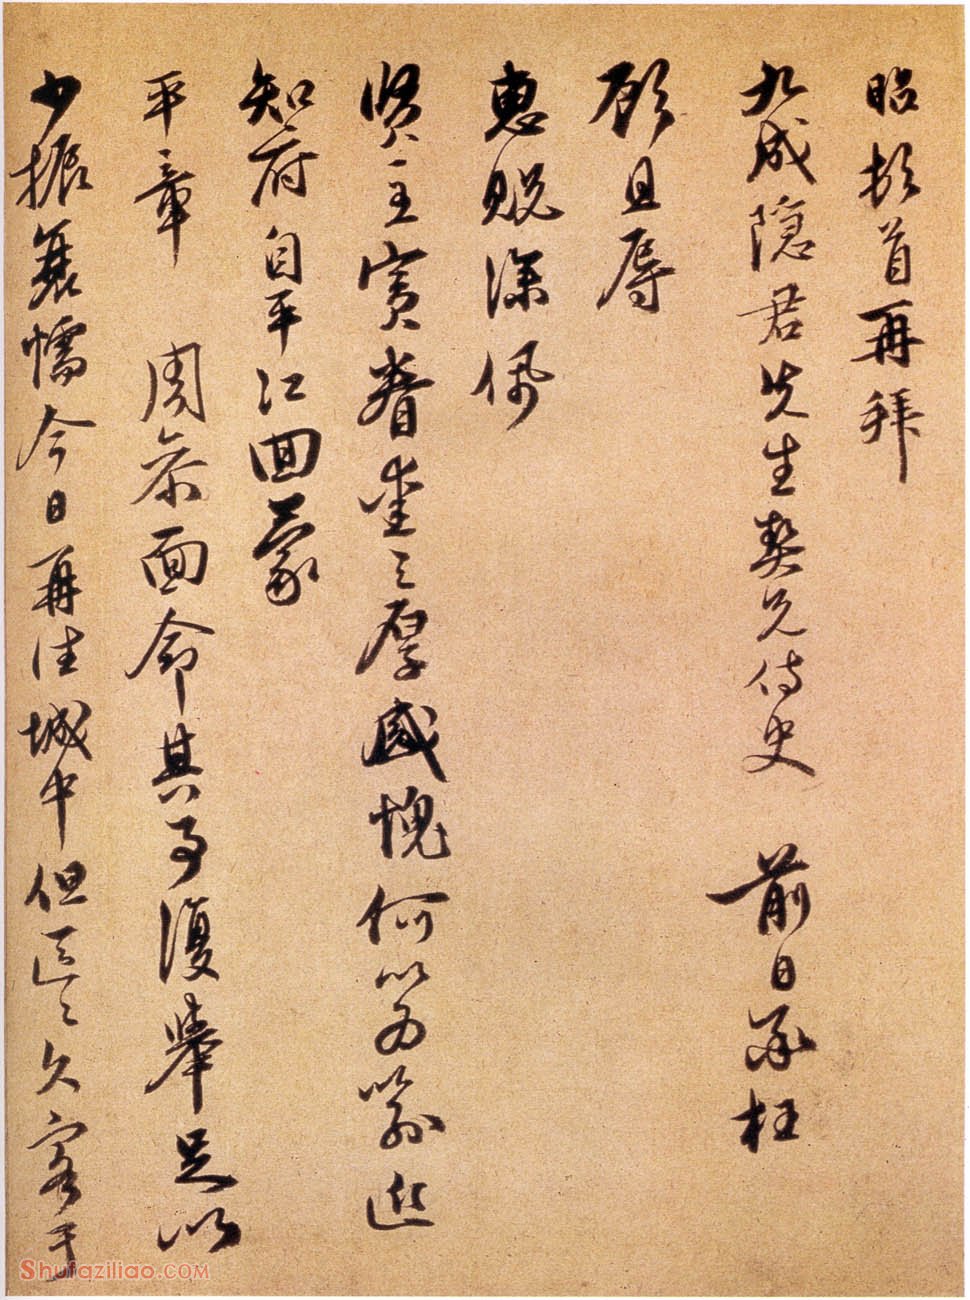 昭頓首再拜
九成隱君先生契兄侍史 前日承枉
顧且辱
惠貺深佩
賢主賓眷愛之厚感愧何以為喻近
知府自平江回蒙
平章 周參面命其事復舉足以
少振衰懦今日再往城中但區區久客于
Shufaziliao.COM